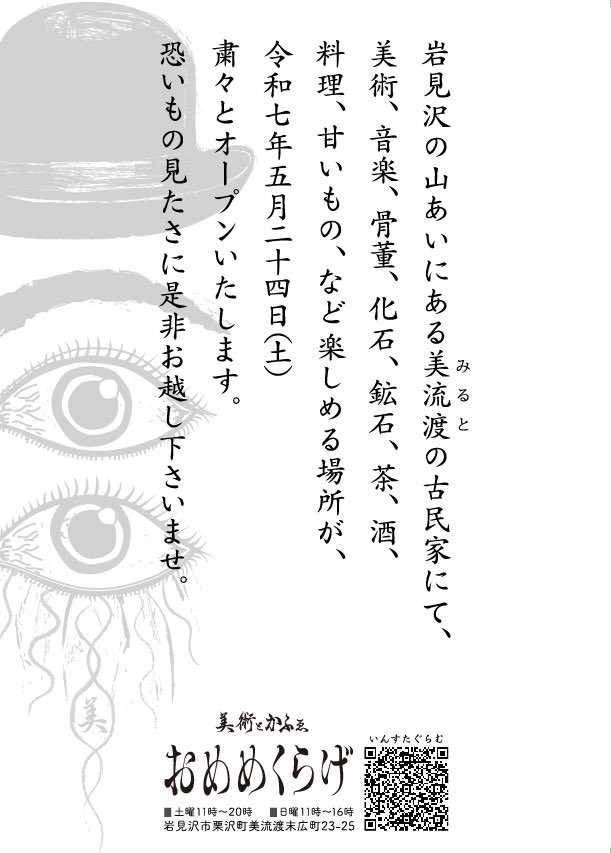 岩見沢の山あいにある美流渡の古民家にて、
みると
美術、音楽、骨董、化石、鉱石、茶、酒、
料理、甘いもの、など楽しめる場所が、
令和七年五月二十四日(土)
粛々とオープンいたします。
恐いもの見たさに是非お越し下さいませ。
美
美術とかふゑ
おめめくらげ
■土曜11時〜20時 ■日曜11時〜16時
岩見沢市栗沢町美流渡末広町23-25
いんすたぐらむ